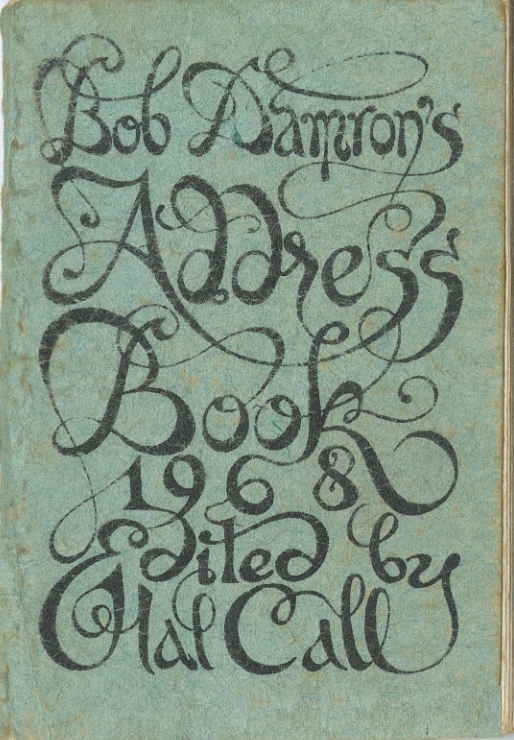 Bob Damron's
Address
Book
1968
Edited by
Hal Call